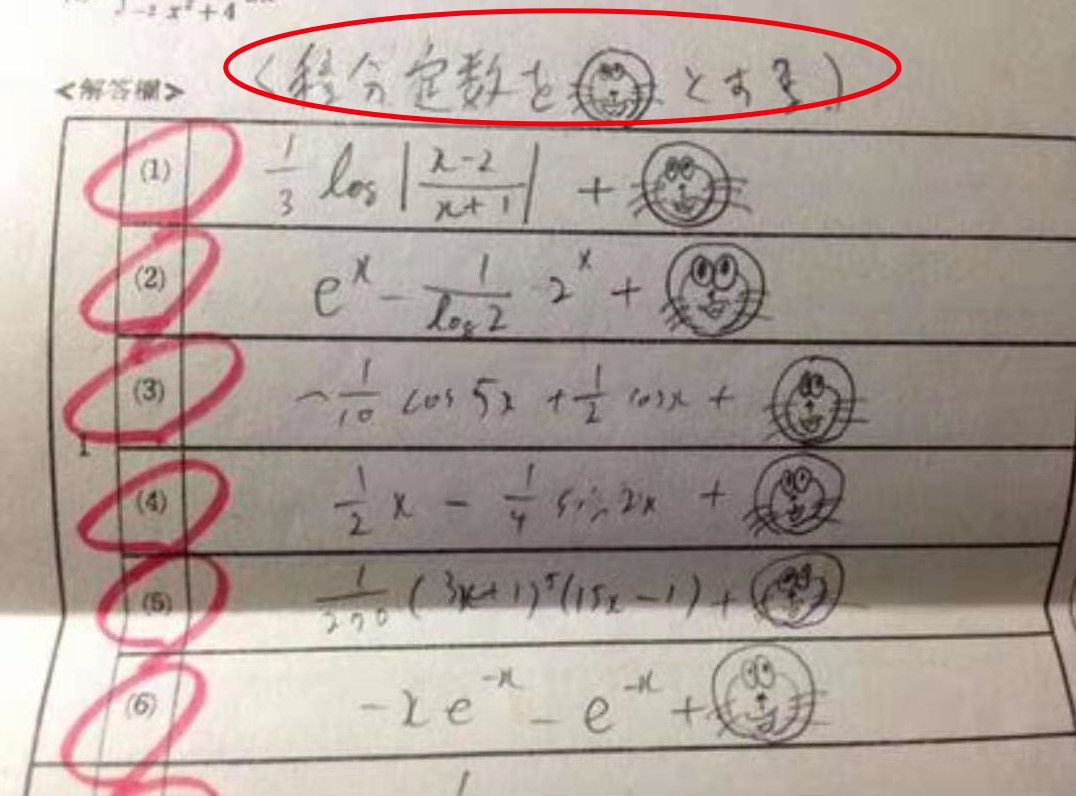 -2 x²+4
(積分定数を とする)
<解答欄>
1
(1) 1/3 log |x-2/x+1| +
(2) eˣ - 1/log2 2ˣ +
(3) -1/10 cos 5x + 1/2 cosx +
(4) 1/2 x - 1/4 sin 2x +
(5) 1/270 (3x+1)⁵(15x-1) +
(6) -xe⁻ˣ - e⁻ˣ +